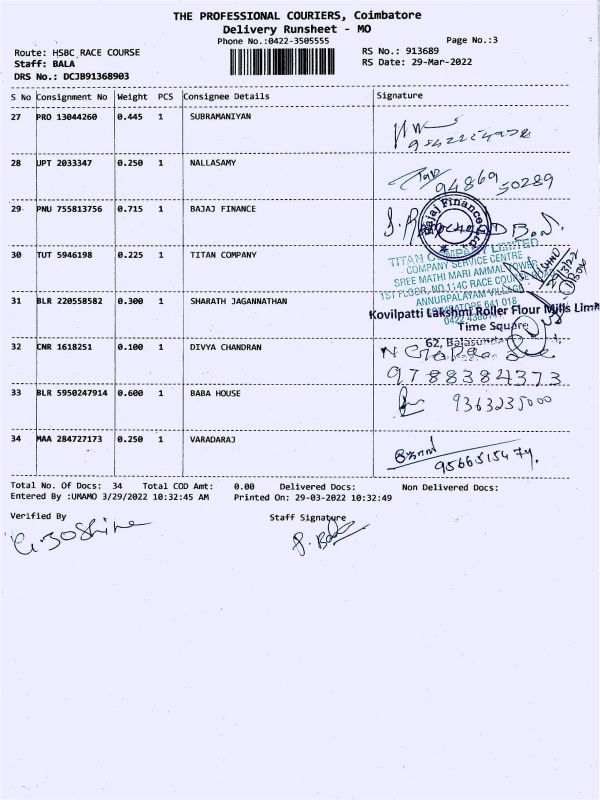 THE PROFESSIONAL COURIERS, Coimbatore
Delivery Runsheet - MO
Phone No.:0422-3505555
Page No.:3
Route: HSBC RACE COURSE
RS No.: 913689
Staff: BALA
RS Date: 29-Mar-2022
DRS No.: DCJB91368903
S No Consignment No Weight PCS Consignee Details Signature
27 PRO 13044260 0.445 1 SUBRAMANIYAN
28 UPT 2033347 0.250 1 NALLASAMY
94869 50289
29 PNU 755813756 0.715 1 BAJAJ FINANCE
Bajaj Finance Ltd
30 TUT 5946198 0.225 1 TITAN COMPANY
TITAN COMPANY LIMITED
COMPANY SERVICE CENTRE
SREE MATHI MARI AMMAL TOWER
1ST FLOOR, NO.114C RACE COURSE
ANNURPALAYAM VILLAGE
COIMBATORE 641 018
31 BLR 220558582 0.300 1 SHARATH JAGANNATHAN
Kovilpatti Lakshmi Roller Flour Mills Limi
Time Square
62,
32 CNR 1618251 0.100 1 DIVYA CHANDRAN
9788384373
33 BLR 5950247914 0.600 1 BABA HOUSE
9363235000
34 MAA 284727173 0.250 1 VARADARAJ
Total No. Of Docs: 34 Total COD Amt: 0.00 Delivered Docs: Non Delivered Docs:
Entered By :UMAMO 3/29/2022 10:32:45 AM Printed On: 29-03-2022 10:32:49
Verified By Staff Signature